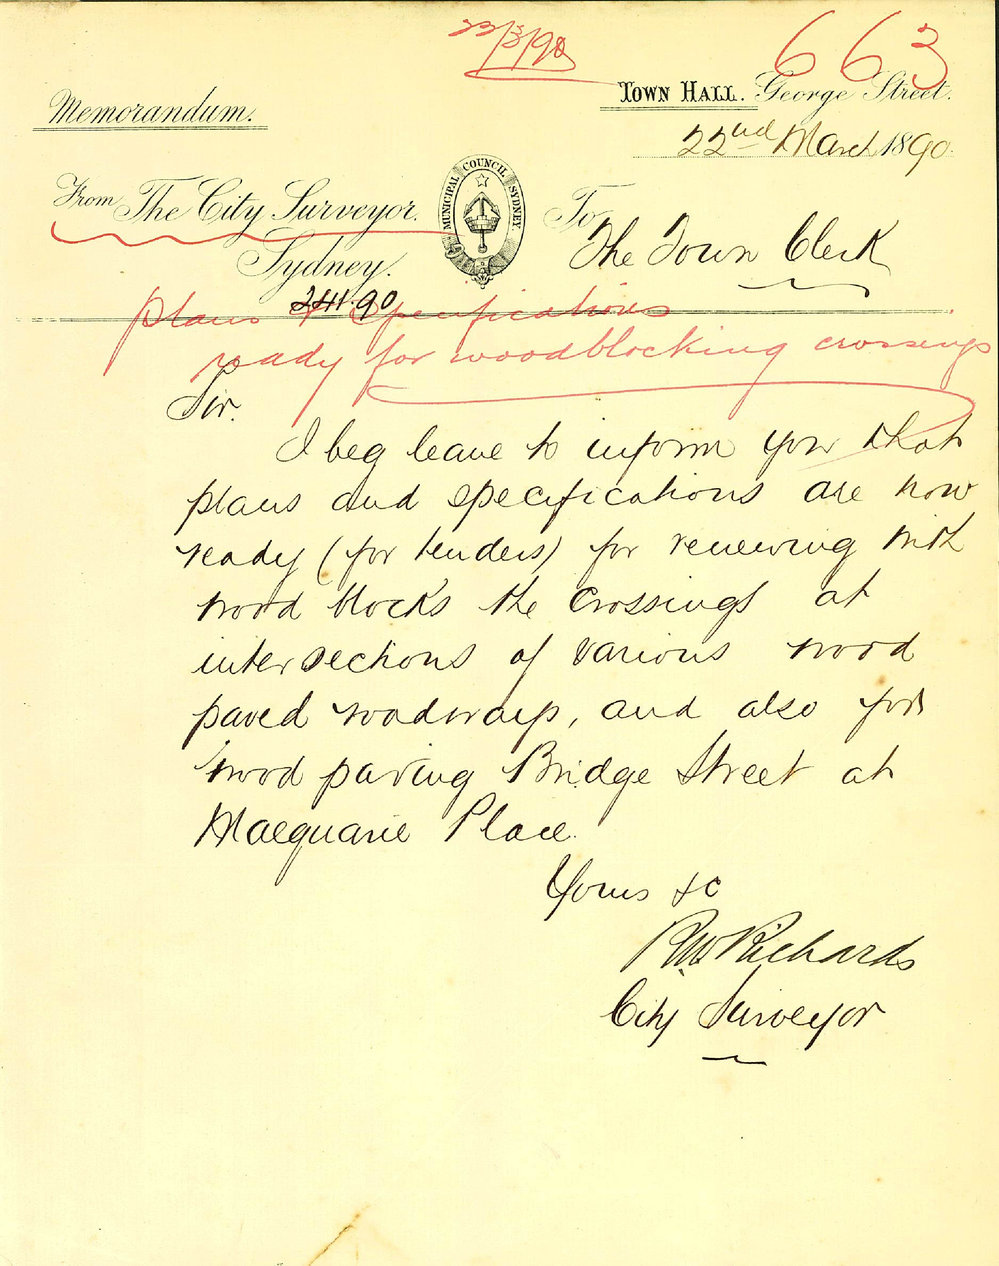 22/3/90
663
TOWN HALL. George Street.
Memorandum.
22nd March 1890.
From The City Surveyor.
Sydney.
MUNICIPAL COUNCIL SYDNEY
To
The Town Clerk
241.90
plans & Specifications
ready for woodblocking crossings
Sir.
I beg leave to inform you that
plans and specifications are now
ready (for tenders) for renewing with
wood blocks the crossings at
intersections of various wood
paved roadways, and also for
wood paving Bridge Street at
Macquarie Place.
Yours &c
RW Richards
City Surveyor